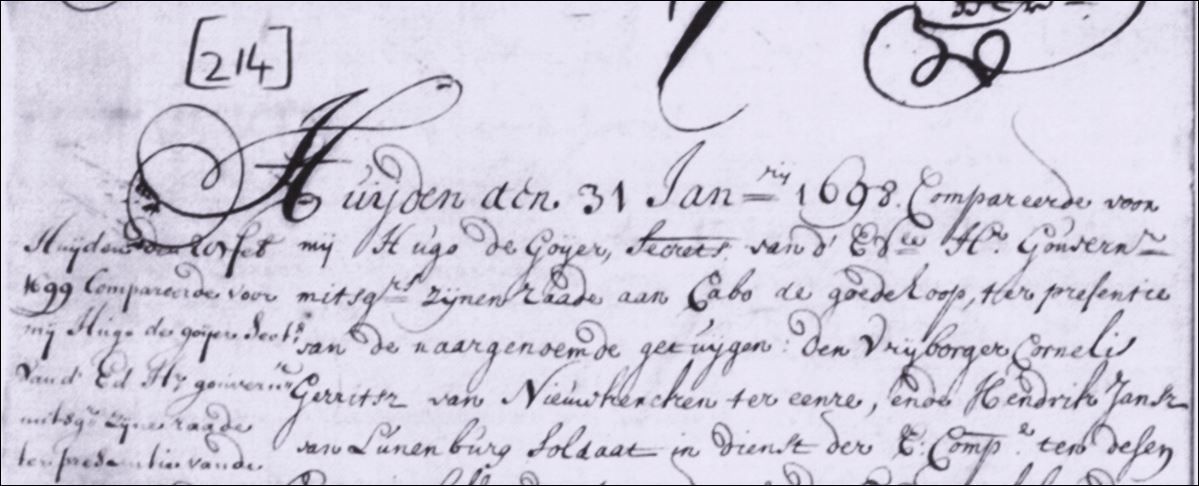 [214]
Huijden den 31 Jan=rij 1698. Compareerde voor
mij Hugo de Goijer, Secrets. van d' Edlen Hr. Gouvernr
mitsgrs zijnen raade aan Cabo de goede hoop, ter presentie
van de naargenoemde getuijgen: den Vrijborger Cornelis
Gerritsz van Nieuwkercken ter eenre, ende Hendrik Jansz
van Lunenburg Soldaat in dienst der E: Compe. ten desen
Huijden den feb
1699 Compareerde voor
mij Hugo de goijer Sects
van d' Ed Hr gouvernr
mitsgrs zijne raade
ter presentie van de